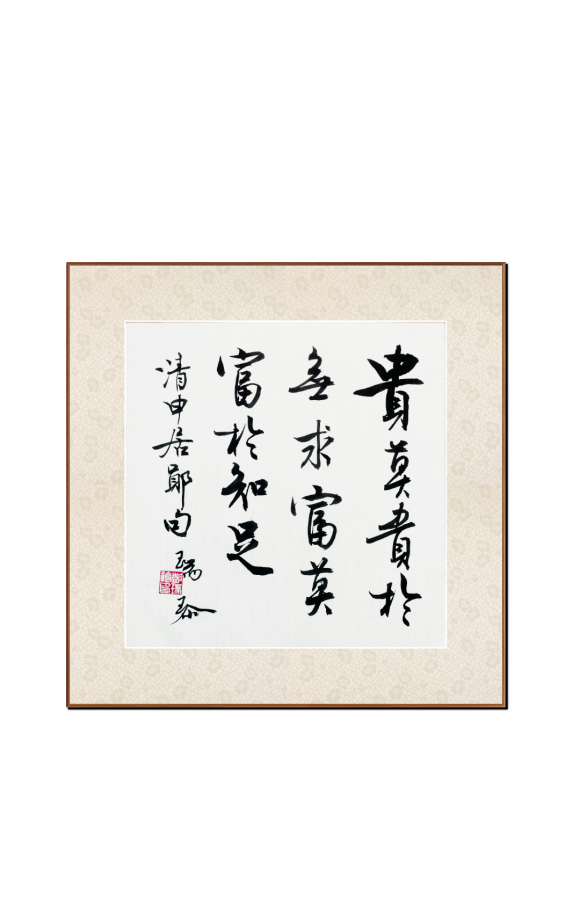 貴莫貴於
無求富莫
富於知足
清申居鄖句
瑞泰